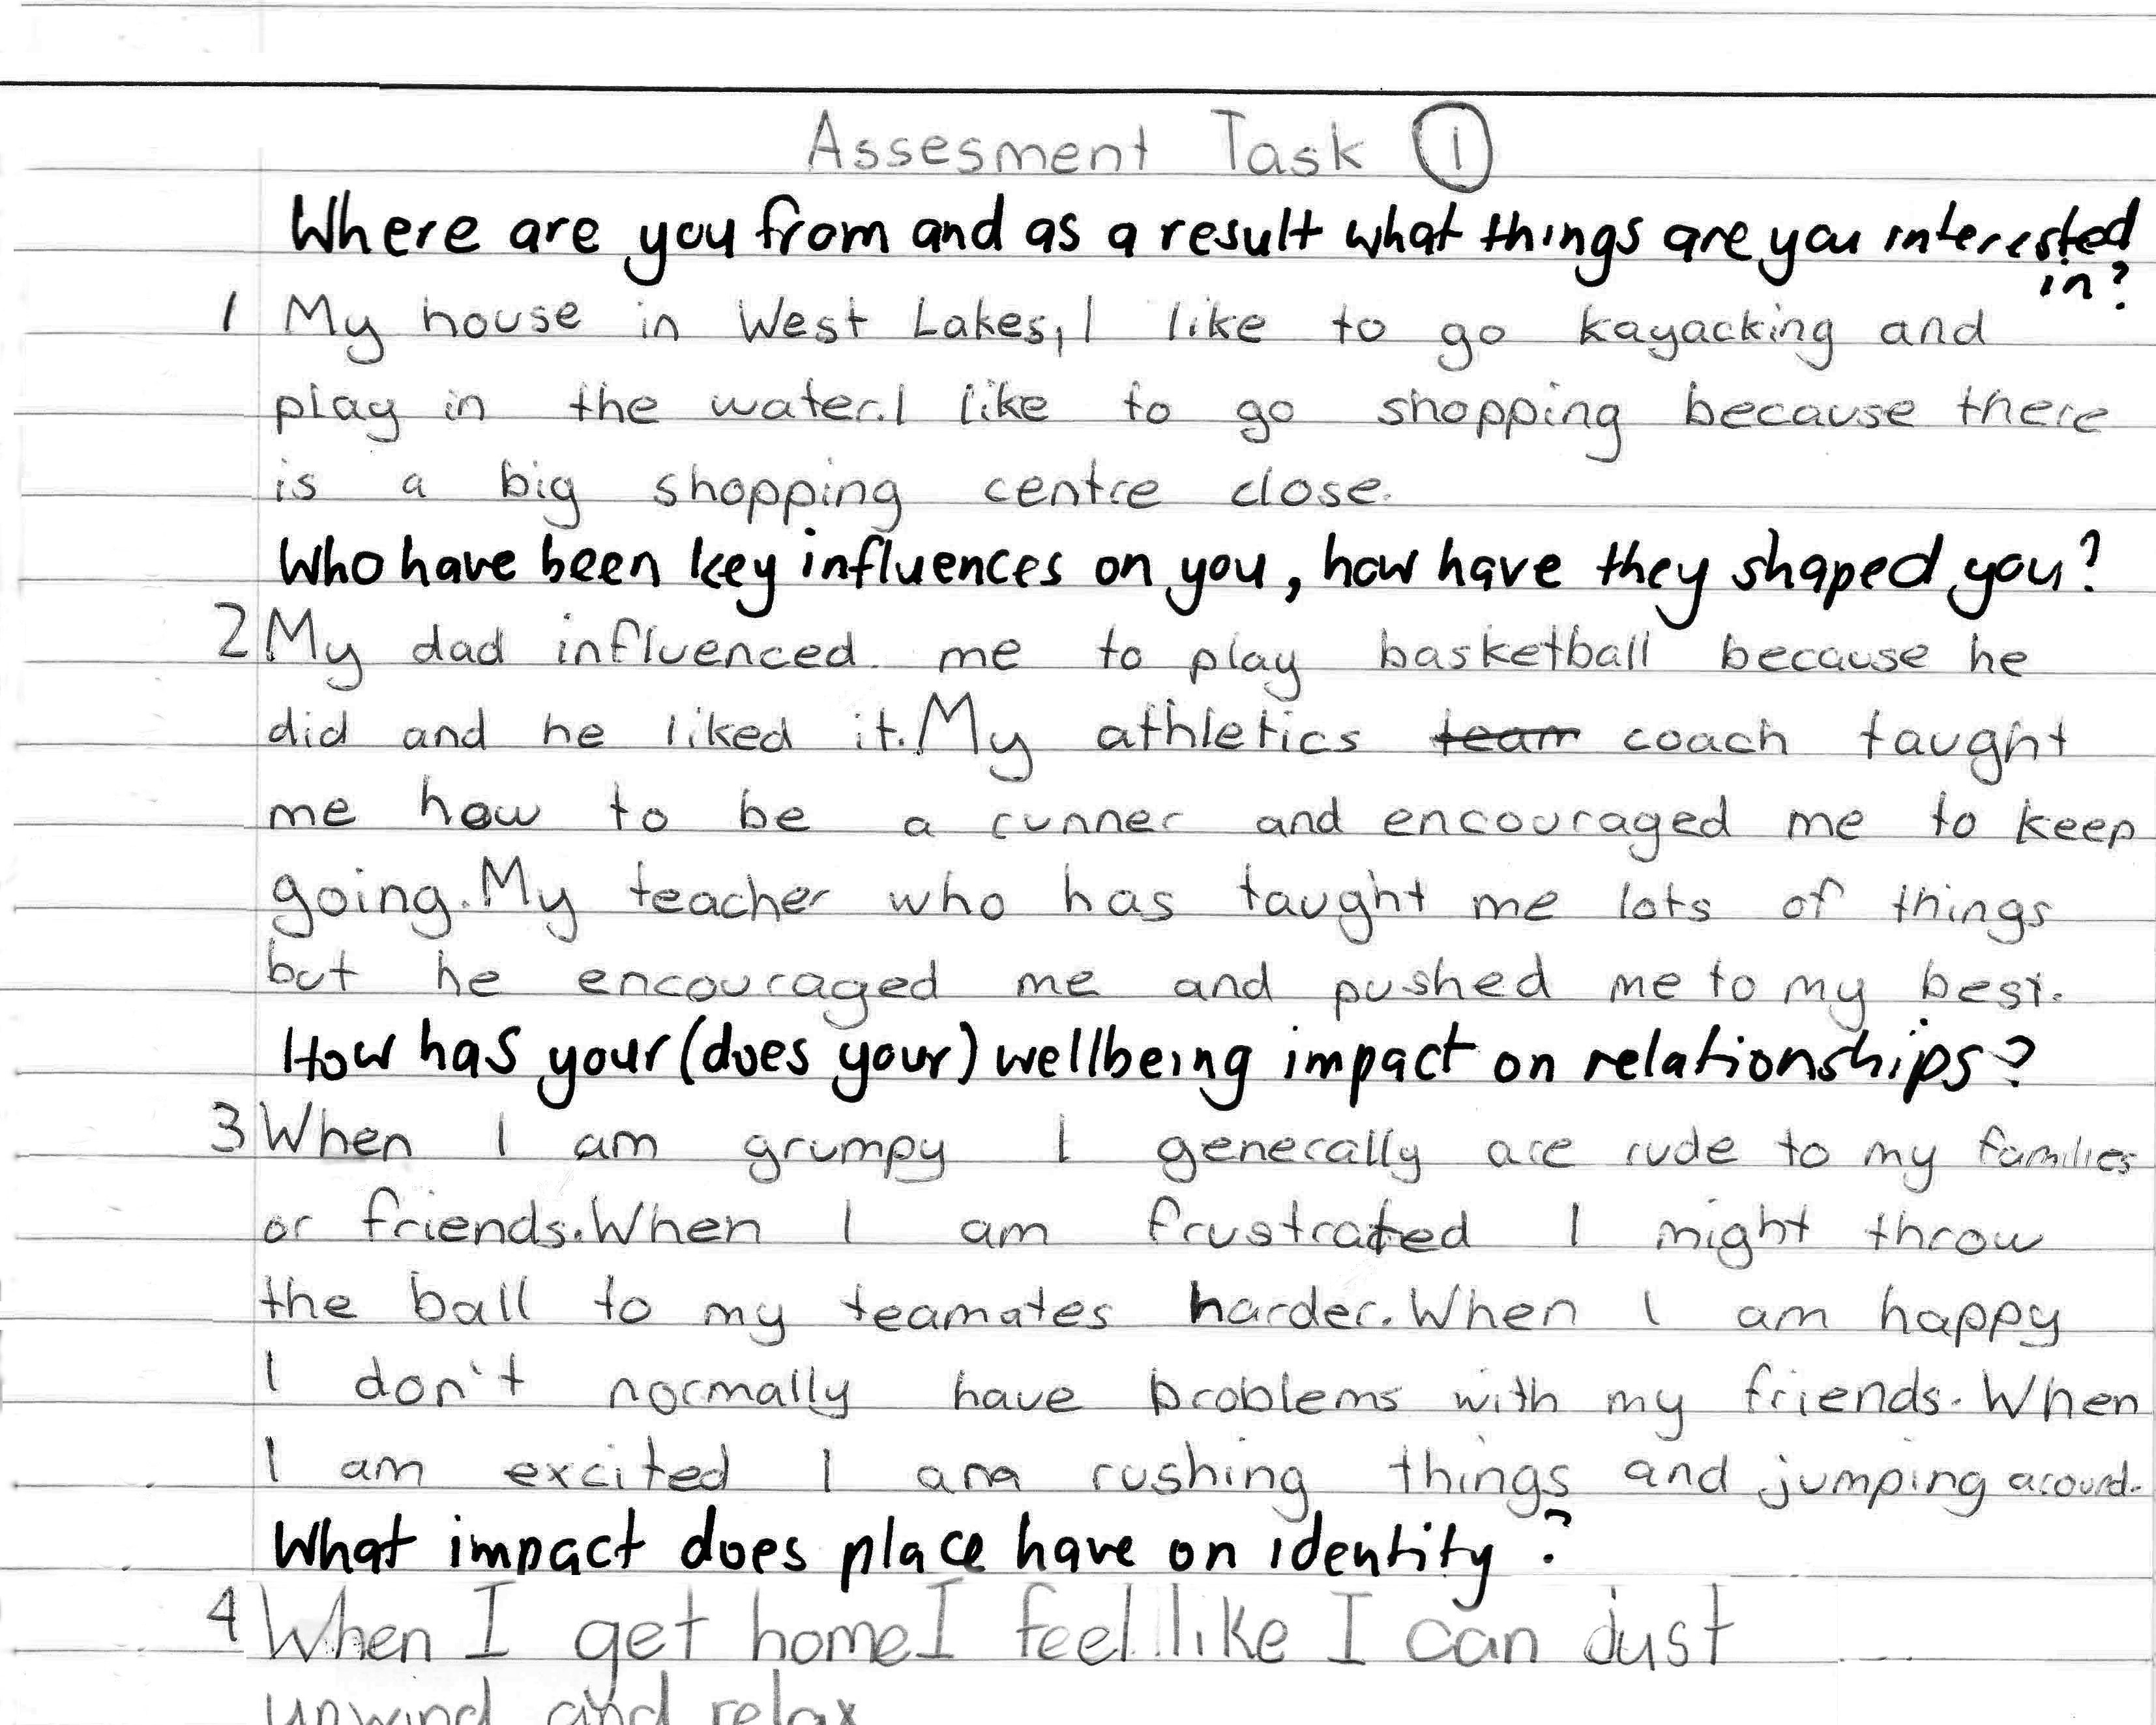 Assesment Task ①
Where are you from and as a result what things are you interested
in?
1 My house in West Lakes, I like to go kayacking and
play in the water. I like to go shopping because there
is a big shopping centre close.
Who have been key influences on you, how have they shaped you?
2 My dad influenced me to play basketball because he
did and he liked it. My athletics ~~team~~ coach taught
me how to be a runner and encouraged me to keep
going. My teacher who has taught me lots of things
but he encouraged me and pushed me to my best.
How has your (does your) wellbeing impact on relationships?
3 When I am grumpy I generally are rude to my families
or friends. When I am frustrated I might throw
the ball to my teamates harder. When I am happy
I don't normally have problems with my friends. When
I am excited I am rushing things and jumping around.
What impact does place have on identity?
4 When I get home I feel like I can just
unwind and relax